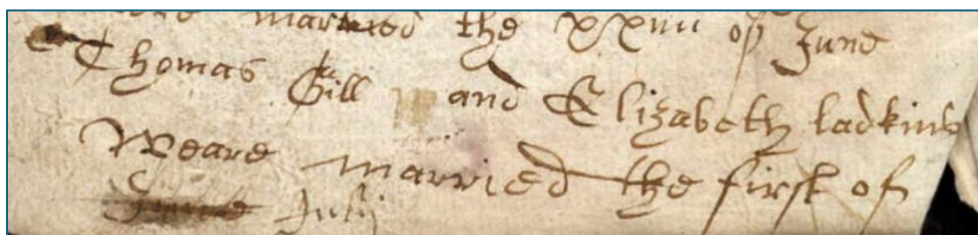 married the xxviii of June
Thomas Gill and Elizabeth ladkins
Weare married the first of
July